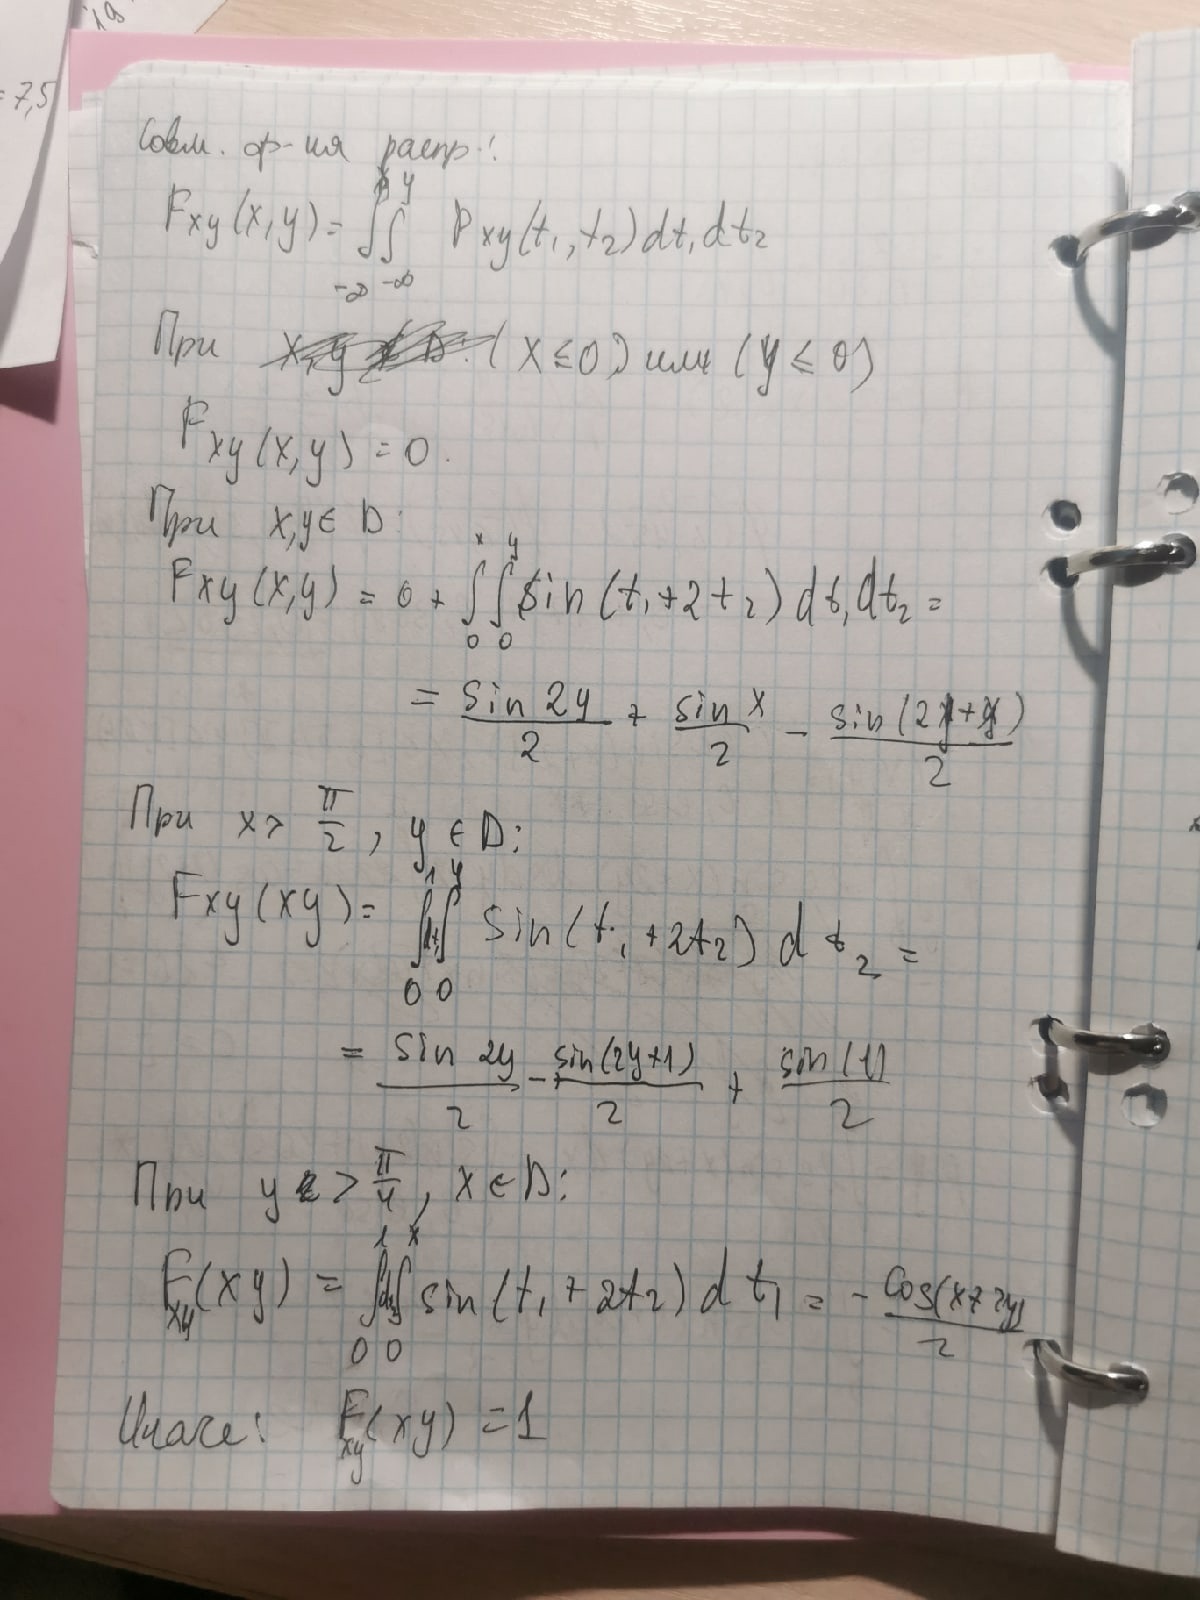 19
= 7,5
Совм. ф-ия распр.:
Fxy(x,y) = ∫∫ Pxy(t₁,t₂)dt₁dt₂
x y
-∞ -∞
При (x ≤ 0) или (y ≤ 0)
Fxy(x,y) = 0.
При x,y ∈ D:
x y
Fxy(x,y) = 0 + ∫∫ sin(t₁+2t₂)dt₁dt₂ =
0 0
= sin 2y / 2 + sin x / 2 - sin(2y+x) / 2
При x > π/2, y ∈ D:
1 y
Fxy(xy) = ∫dt₁∫ sin(t₁+2t₂)dt₂ =
0 0
= sin 2y / 2 - sin(2y+1) / 2 + sin(1) / 2
При y > π/4, x ∈ D:
1 x
Fxy(xy) = ∫dt₂∫ sin(t₁+2t₂)dt₁ = - cos(x+2y) / 2
0 0
Иначе: Fxy(xy) = 1